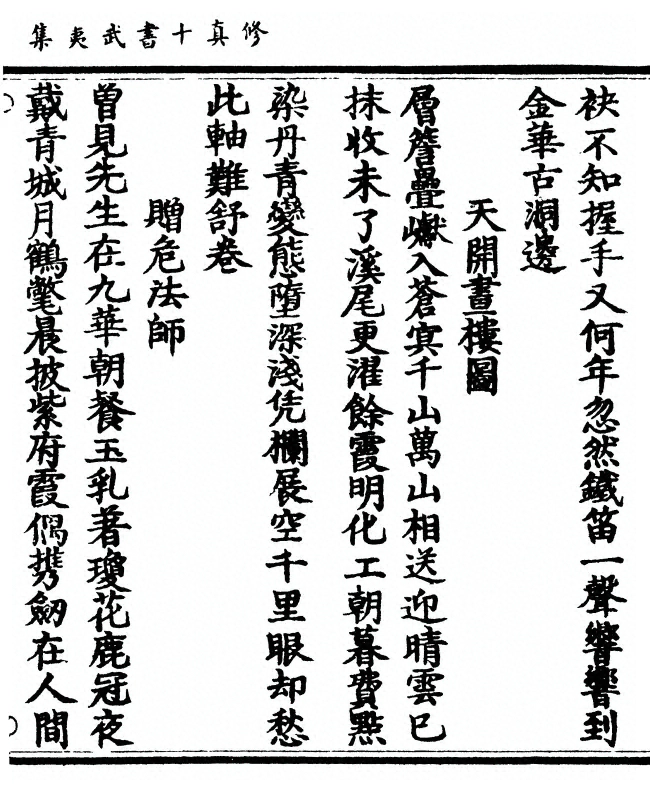 修真十書武夷集
袂不知握手又何年忽然鐵笛一聲響響到
金華古洞邊
天開畫樓圖
層簷疊巘入蒼冥千山萬山相送迎晴雲已
抹收未了溪尾更濯餘霞明化工朝暮費點
染丹青變態墮深淺凭欄展空千里眼却愁
此軸難舒卷
贈危法師
曾見先生在九華朝餐玉乳著瓊花鹿冠夜
戴青城月鶴氅晨披紫府霞偶携劒在人間